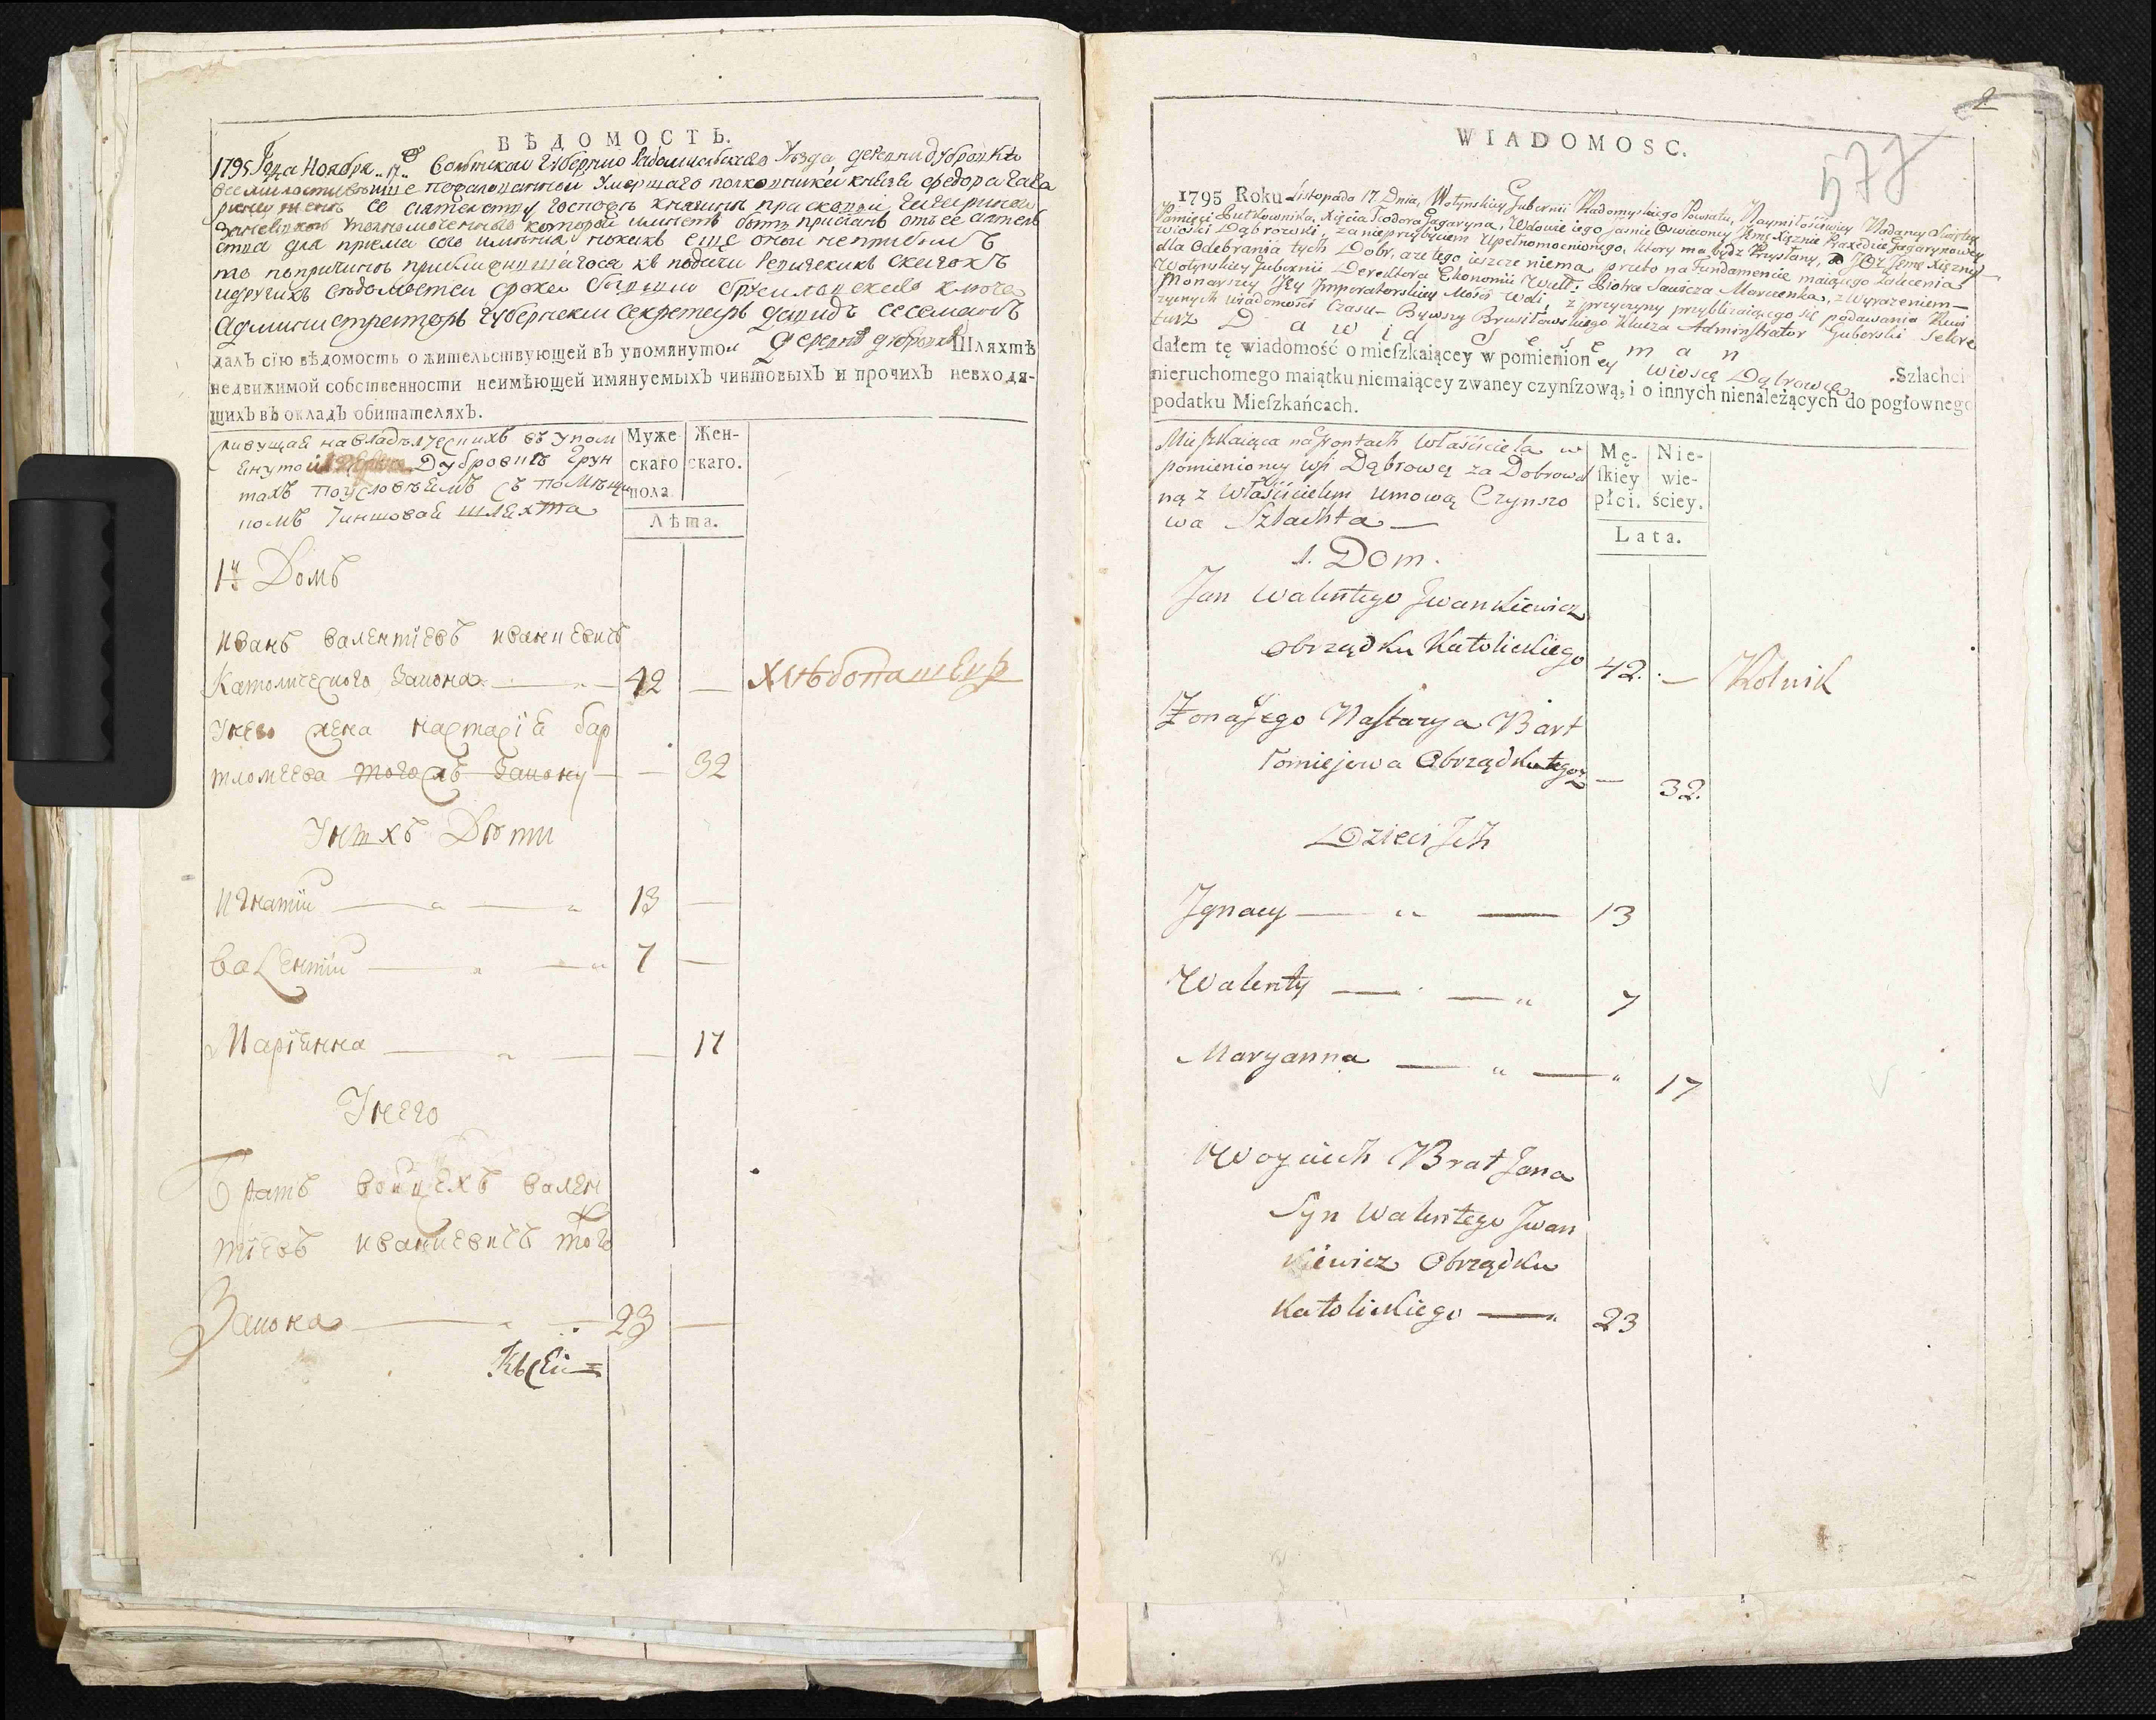 ВѢДОМОСТЬ.
1795 Года Ноября 17 Волынской Губернии Радомысльскаго Уезда деревни Дубровки
всемилостивѣйше пожалованной умершаго полковника князя Федора Гага
ея сіятельству госпожѣ княгинѣ Гагариной
уполномоченнаго которой имѣетъ быть присланъ отъ ее сіятель
ства для приема сего имѣнія поколь еще оной не прибылъ
то по причинѣ приближившагося къ подачи Ревижскихъ сказокъ
и другихъ вѣдомостей срока бывший Брусиловскаго ключа
администраторъ губернскии секретарь давидъ сесеманъ
далъ сію вѣдомость о жительствующей въ упомянутой деревнѣ дубровкѣ Шляхтѣ
недвижимой собственности неимѣющей имянуемыхъ чиншовыхъ и прочихъ невходя-
щихъ въ окладъ обитателяхъ.
живущая на владѣлческихъ въ упом
янутой Дубровкѣ грун
тахъ по условѣямъ съ помѣщи
комъ чиншовая шляхта
Муже
скаго
пола
Жен-
скаго.
Лѣта.
1й Домъ
Иванъ валентіевъ иванкевичъ
Католическаго Закона 42 — Хлѣбопашецъ
У него жена настасія бар
тломеева того жъ Закону — 32
У нихъ Дѣти
Игнатіи 13 —
валентіи 7 —
Маріанна — 17
У него
братъ войцехъ вален
тіевъ иванкевичъ того
Закона 23 —
Къ сей
WIADOMOSC.
2
577
1795 Roku Listopada 17 Dnia, Wołynskiey Gubernii Radomyslskiego Powiatu, Naymiłościwiey Nadaney Świętey
Pamięci Pułkownika, Xięcia Teodora Gagaryna, Wdowie iego Jasnie Oswieconey Jeyme Xiężnie Praxedzie Gagarynowey
wioski Dąbrowki, za nieprzybyciem Upełnomocnionego, ktory ma bydz Przysłany, JO Jeyme Xiężny
dla Odebrania tych Dobr, aże tego ieszcze niema, przeto na Fundamencie maiącego Zalecenia
Wołynskiey Gubernii Derektora Ekonomii Piotra Marczenka, z Wyrazeniem
Monarszey Jey Imperatorskiey Mości Woli, z przyczyny przyblizaiącego się podawania Rewi
zyinych wiadomości Czasu Bywszy Brusiłowskiego Klucza Administrator Guberski Sekre
tarz Dawid Seseman
dałem tę wiadomość o mieſzkaiącey w pomienioney wioscę Dąbrowce Szlachci
nieruchomego maiątku niemaiącey zwaney czynſzową, i o innych nienależących do pogłownego
podatku Mieſzkańcach.
Mieſzkaiąca na grontach Właściciela w
pomienioney wsi Dąbrowcę za Dobrowol
ną z Właścicielem Umową Czynszo
wa Szlachta
Mę-
ſkiéy
płci.
Nie-
wie-
ściey.
Lata.
1. Dom.
Jan Walentego Jwankiewicz
obrządku Katolickiego 42. — Rolnik
Żona Jego Nastazya Bart
łomiejowa Obrządku tegoż — 32.
Dzieci Jch
Jgnacy 13
Walenty 7
Maryanna 17
Woyciech Brat Jana
Syn Walentego Jwan
kiewicz Obrządku
Katolickiego 23